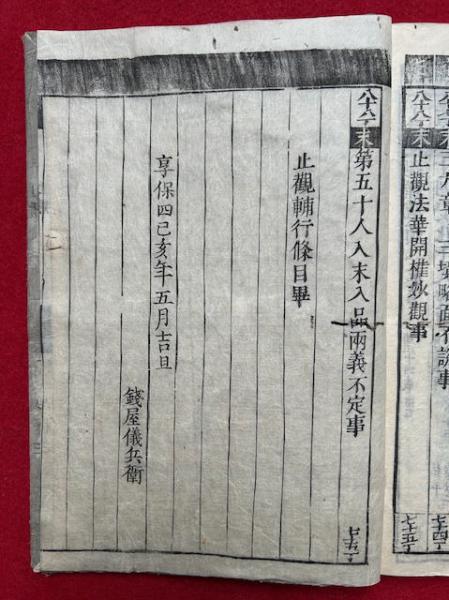 止觀法華開權妙觀事
七十五丁
八十八丁 末 第五十人入末入品兩義不定事
七十五丁
止觀輔行條目畢
享保四己亥年五月吉旦
錢屋儀兵衛